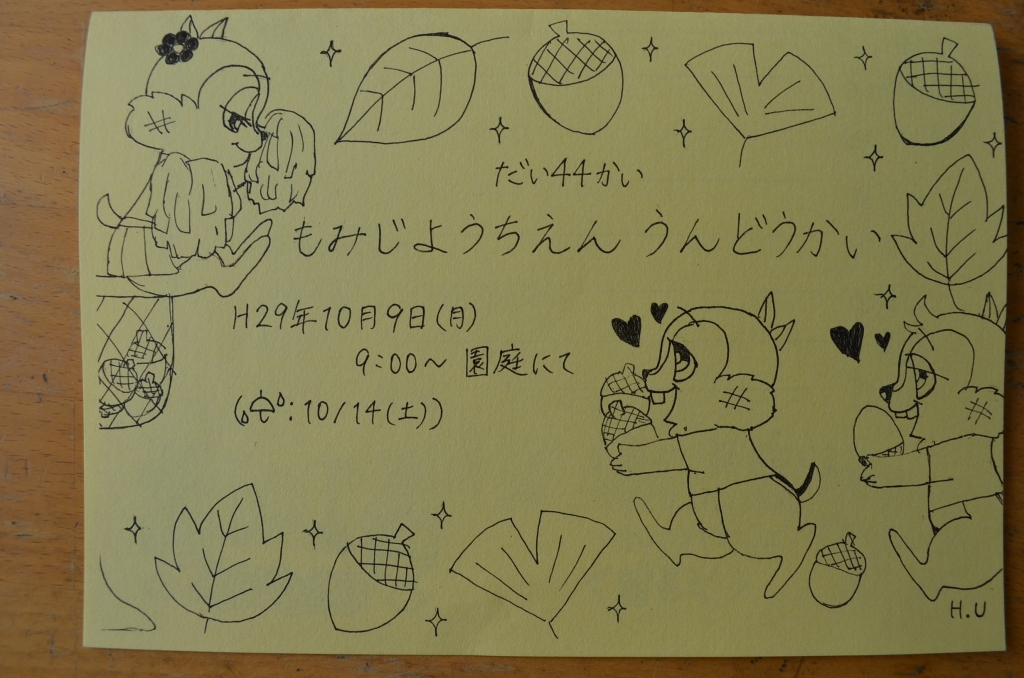 だい44かい
もみじようちえん うんどうかい
H29年10月9日(月)
9:00～ 園庭にて
(☂:10/14(土))
H.U